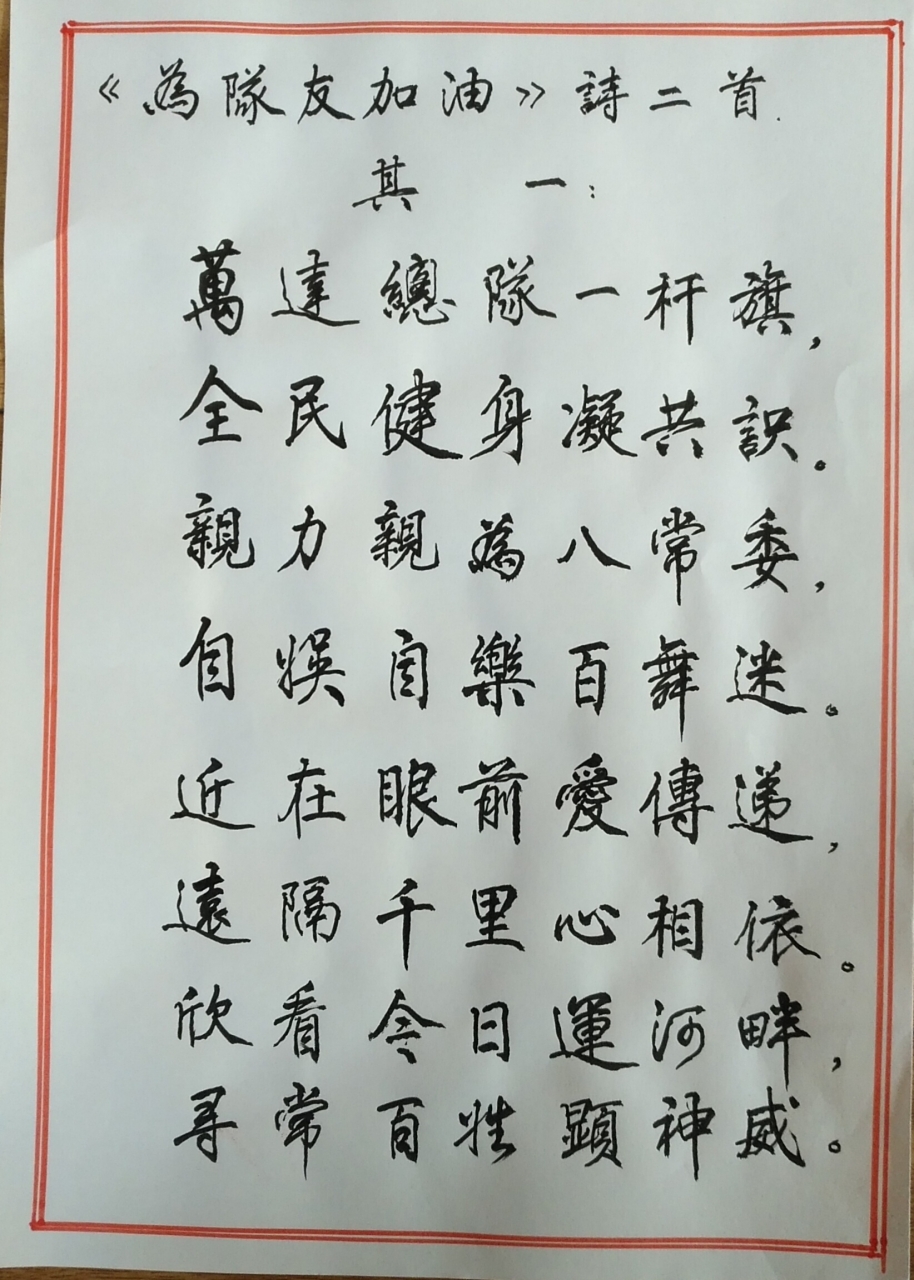 《為隊友加油》詩二首.
其一:
萬達總隊一杆旗,
全民健身一凝共識。
親力親為八常委,
自娛自樂百舞迷。
近在眼前愛傳递,
遠隔千里心相依。
欣看今日運河畔,
寻常百姓顕神威。